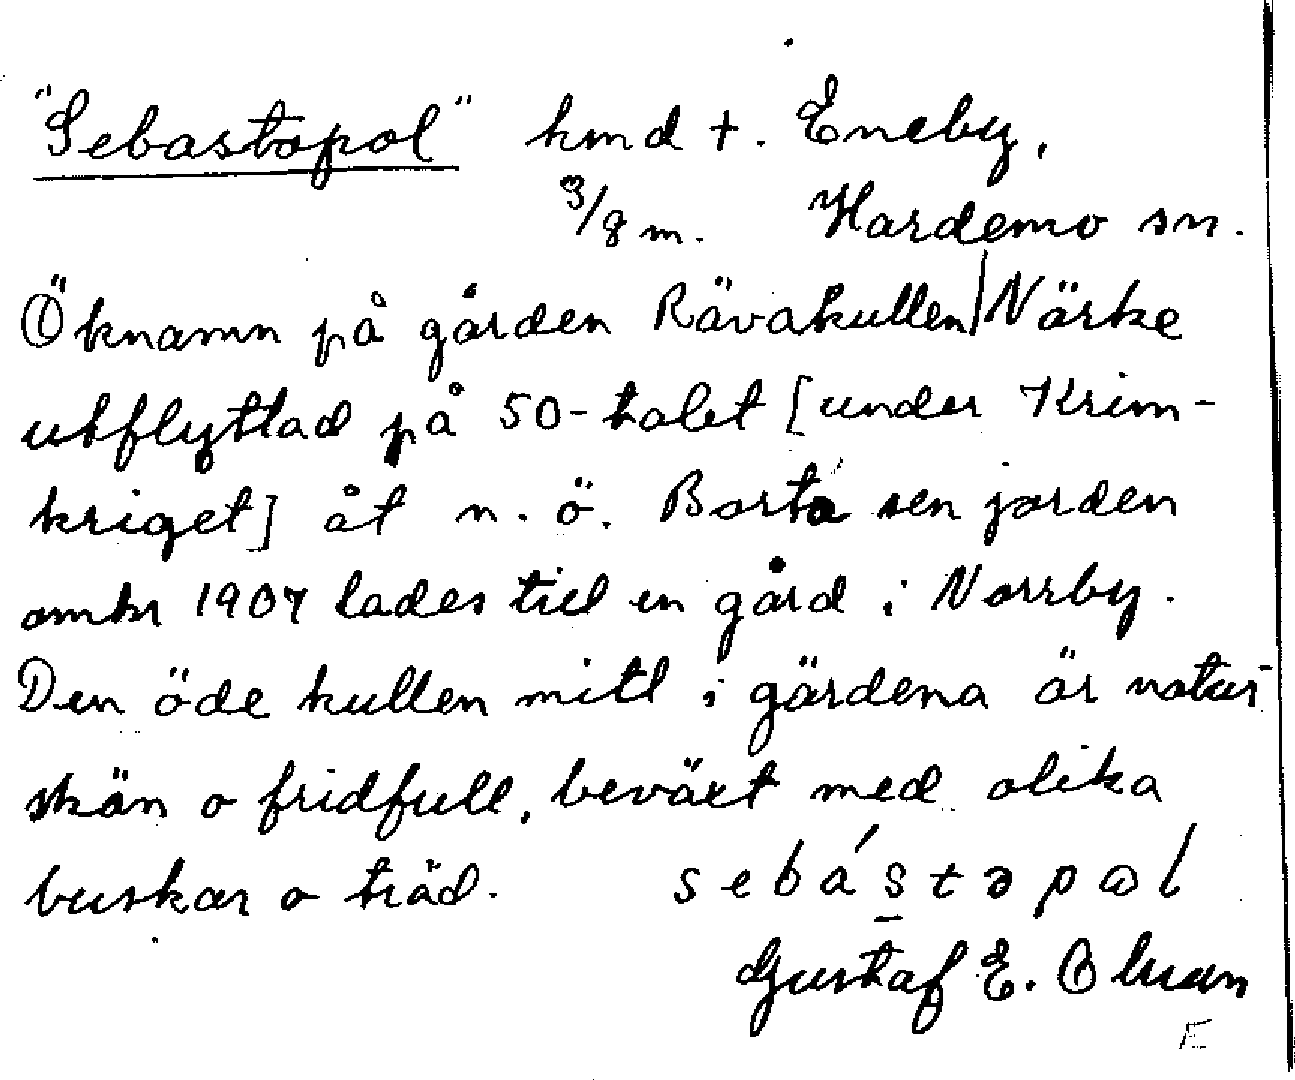 "Sebastopol" hmd t. Eneby,
3/8 m. Hardemo sn.
Öknamn på gården Rävakullen | Närke
utflyttad på 50-talet [under Krim-
kriget] åt n.ö. Borta sen jorden
omkr 1907 lades till en gård i Norrby.
Den öde kullen mitt i gärdena är natur-
skön o fridfull, beväxt med olika
buskar o träd. sebástəpωl
Gustaf E. Ohman
E